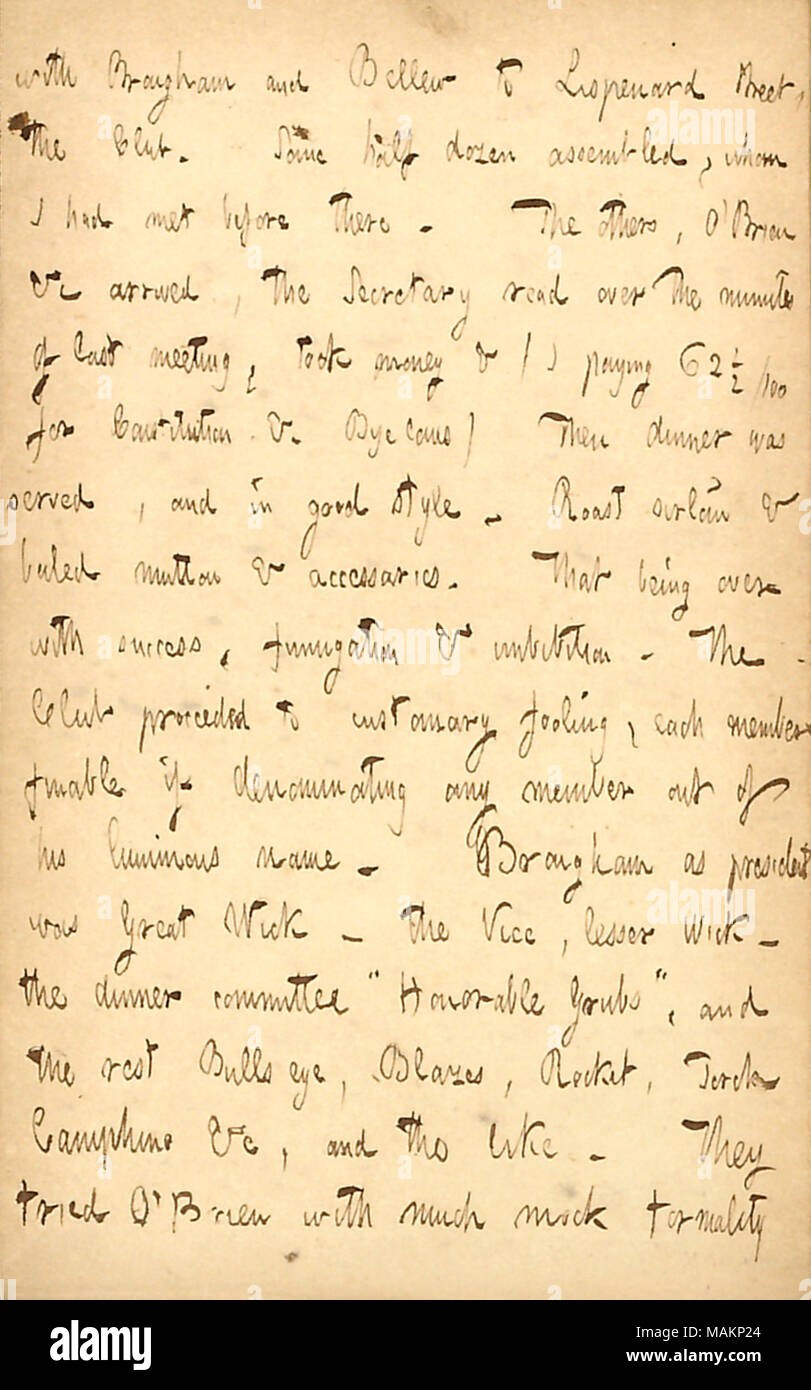 with Brougham and Bellew to Lispenard Street,
the Club. Some half dozen assembled, whom
I had met before there. The others, O'Brien
&c arrived, the Secretary read over the minutes
of last meeting, took money & (I paying 62 ½/100
for Constitution & Bye laws) Then dinner was
served, and in good style. Roast sirloin &
boiled mutton & accessaries. That being over
with success, fumigation & imbibition. The
Club proceeded to customary fooling, each member
finable if denominating any member out of
his luminous name. Brougham as president
was Great Wick - the Vice, lesser Wick -
the dinner committee "Honorable Grubs", and
the rest Bulls eye, Blazes, Rocket, Torch
Camphine &c, and the like. They
tried O'Brien with much mock formality
alamy
Image ID: MAKP24
www.alamy.com